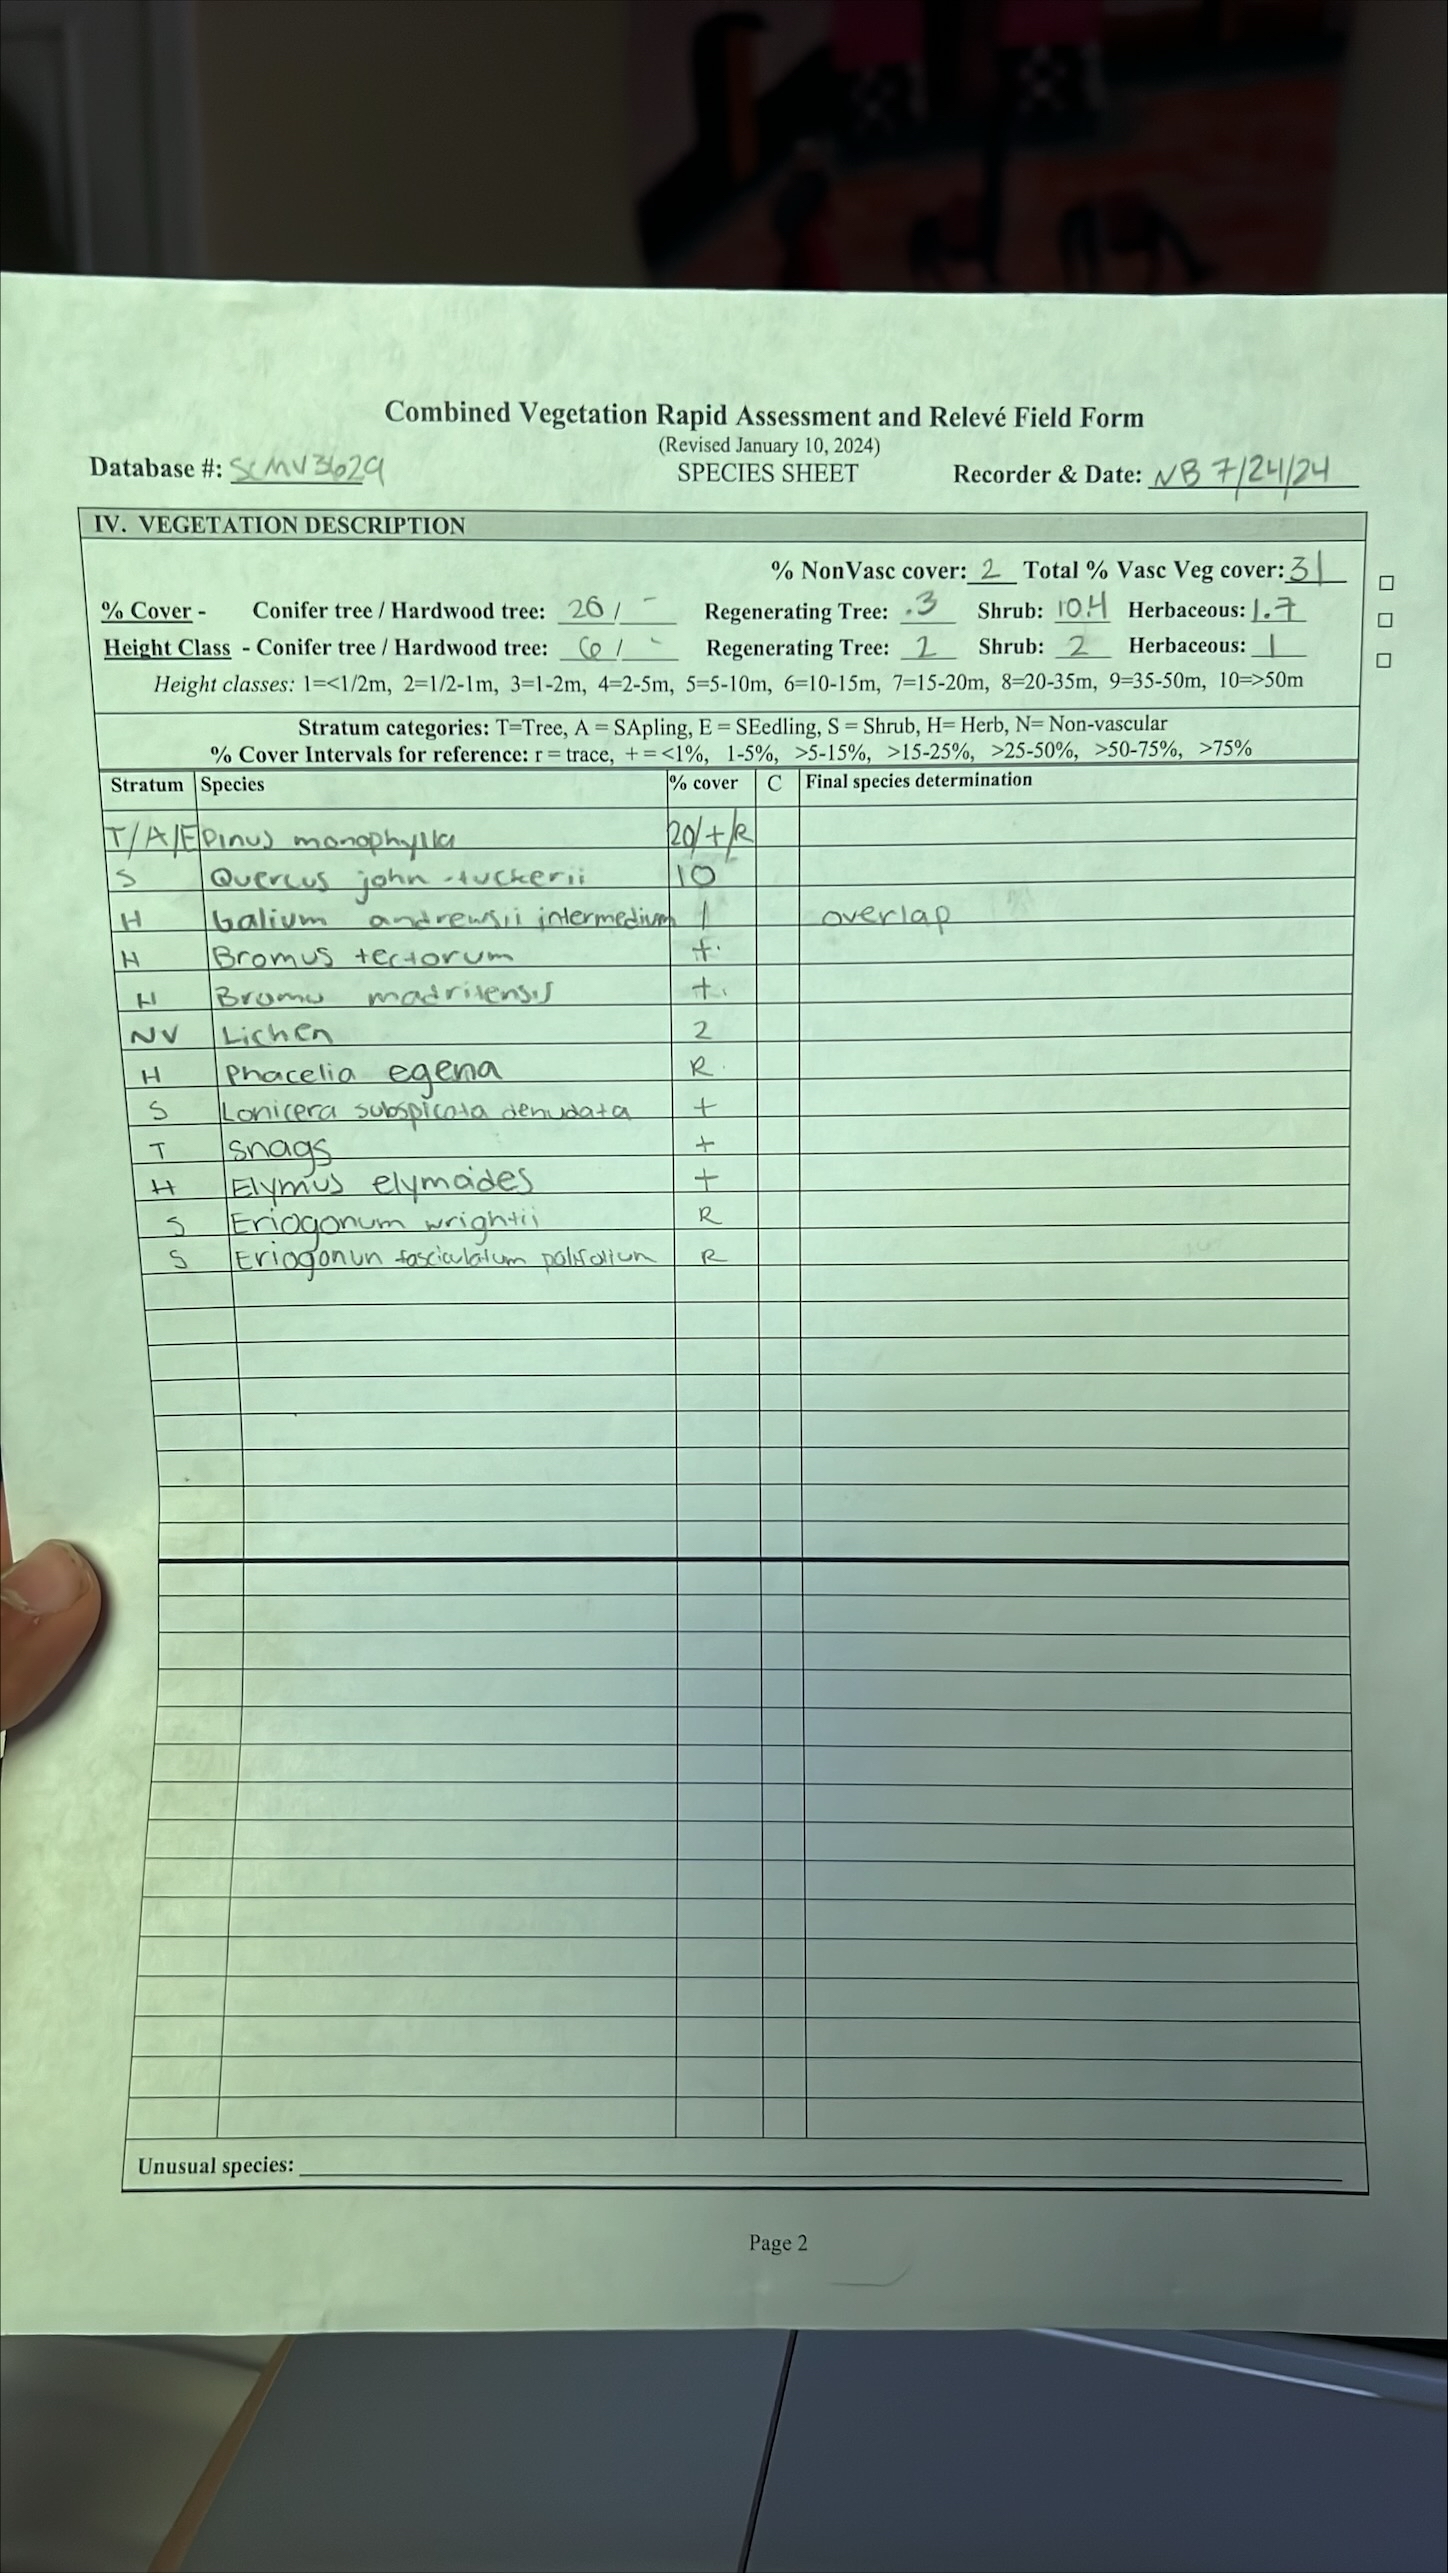 Combined Vegetation Rapid Assessment and Relevé Field Form
(Revised January 10, 2024)
Database #: SCMV3629 SPECIES SHEET Recorder & Date: NB 7/24/24
IV. VEGETATION DESCRIPTION
% NonVasc cover: 2 Total % Vasc Veg cover: 31
% Cover - Conifer tree / Hardwood tree: 20 / - Regenerating Tree: .3 Shrub: 10.4 Herbaceous: 1.7
Height Class - Conifer tree / Hardwood tree: 6 / - Regenerating Tree: 2 Shrub: 2 Herbaceous: 1
Height classes: 1=<1/2m, 2=1/2-1m, 3=1-2m, 4=2-5m, 5=5-10m, 6=10-15m, 7=15-20m, 8=20-35m, 9=35-50m, 10=>50m
Stratum categories: T=Tree, A = SApling, E = SEedling, S = Shrub, H= Herb, N= Non-vascular
% Cover Intervals for reference: r = trace, + = <1%, 1-5%, >5-15%, >15-25%, >25-50%, >50-75%, >75%
Stratum Species % cover C Final species determination
T/A/E Pinus monophylla 20/+/R
S Quercus john-tuckerii 10
H Galium andrewsii intermedium 1 overlap
H Bromus tectorum +
H Bromu madritensis +
NV Lichen 2
H Phacelia egena R
S Lonicera subspicata denudata +
T snags +
H Elymus elymoides +
S Eriogonum wrightii R
S Eriogonun fasciculatum polifolium R
Unusual species:
Page 2